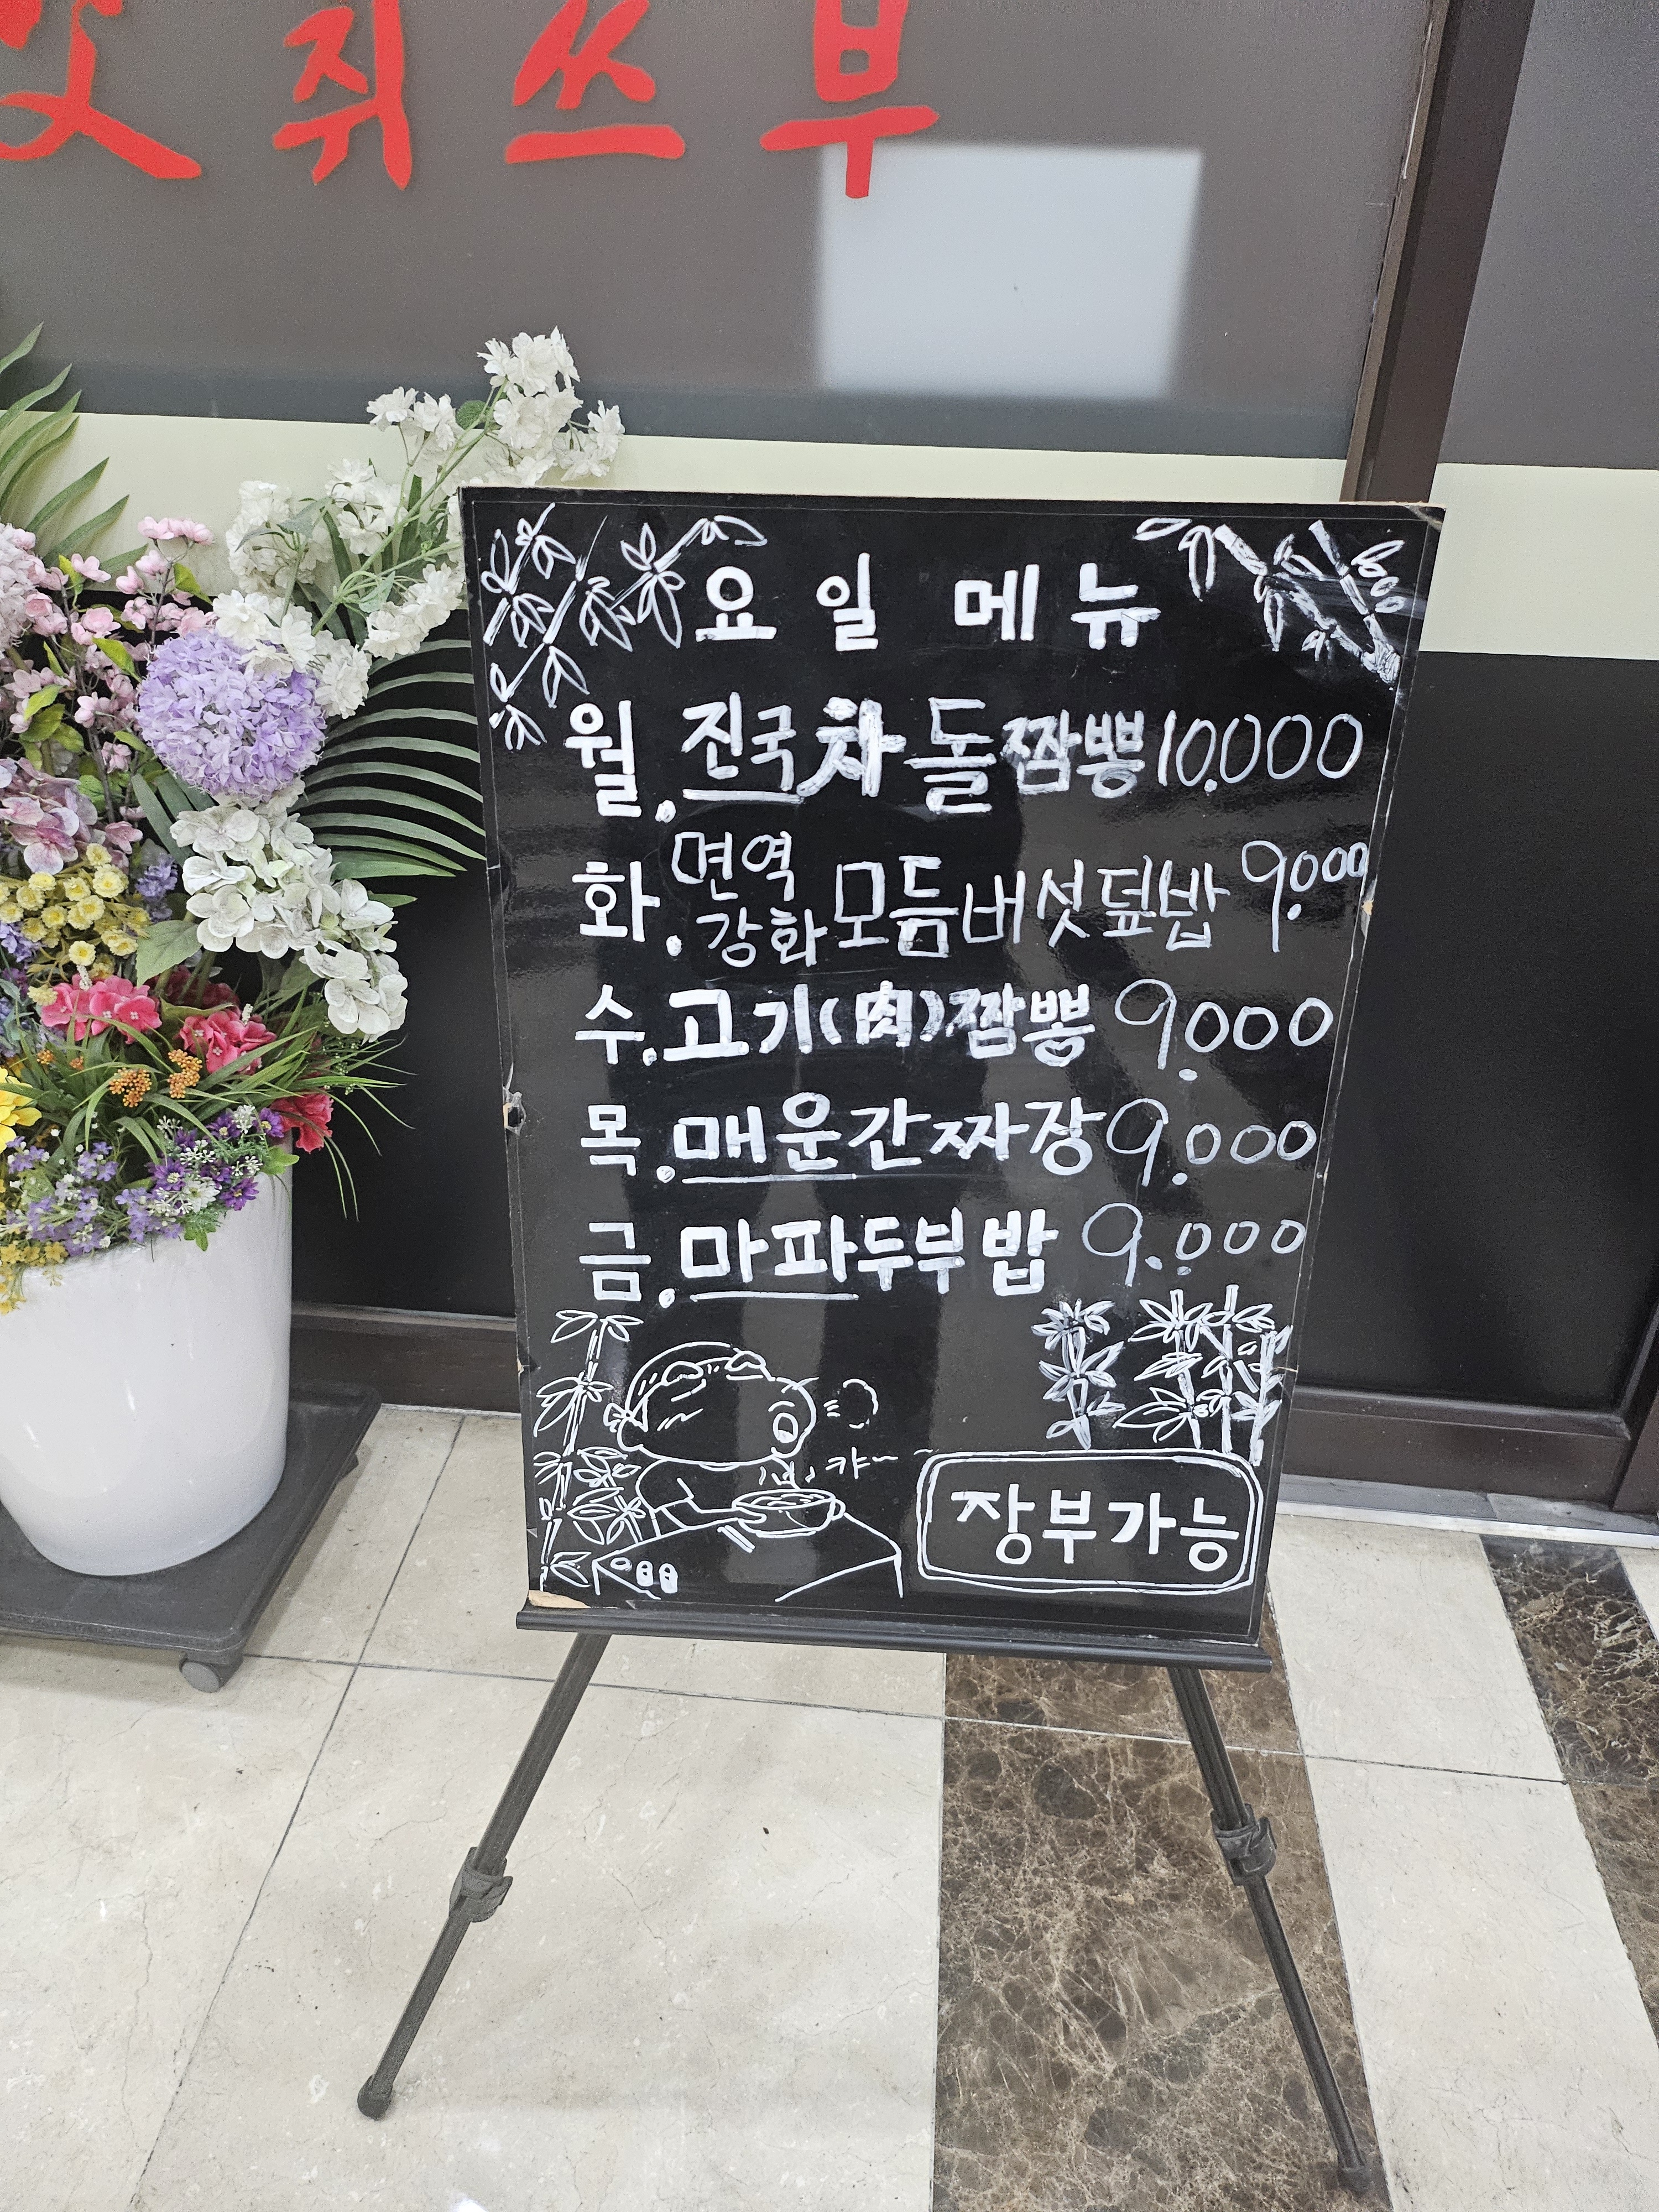 쥐쓰부
요일 메뉴
월. 진국차돌짬뽕 10.000
화. 면역강화 모듬버섯덮밥 9.000
수. 고기(肉)짬뽕 9.000
목. 매운간짜장 9.000
금. 마파두부밥 9.000
캬~
장부가능